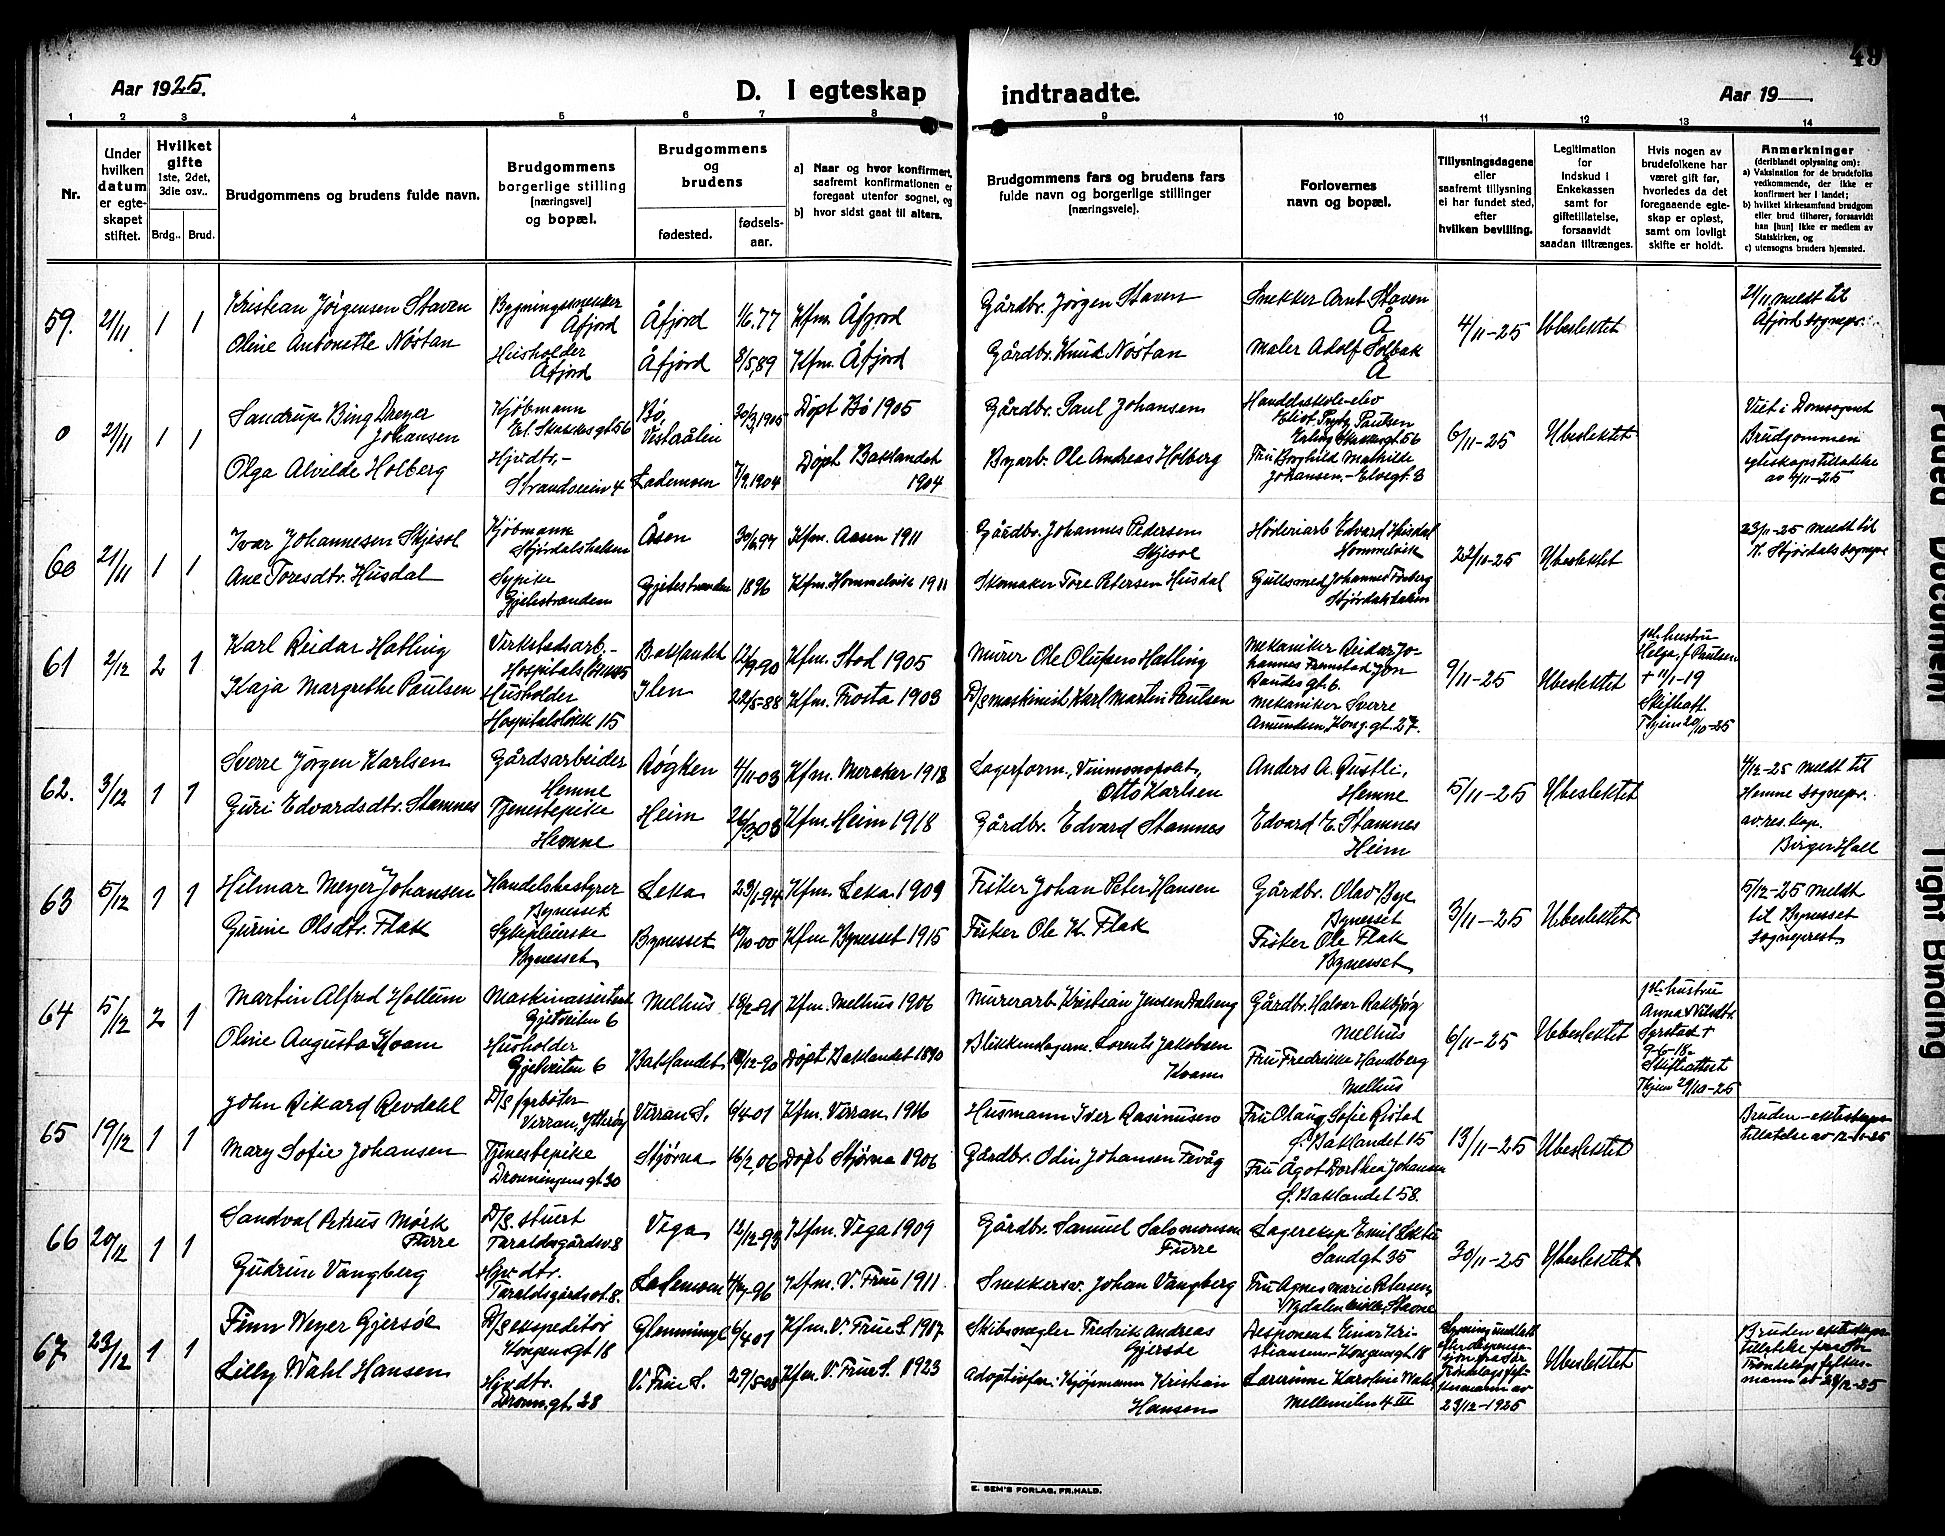 49
Aar 1925.
D. I egteskap indtraadte.
Aar 19
1 2 3 4 5 6 7 8 9 10 11 12 13 14
Nr.
Under hvilken datum er egteskapet stiftet.
Hvilket gifte 1ste, 2det, 3die osv..
Brdg.. Brud.
Brudgommens og brudens fulde navn.
Brudgommens borgerlige stilling (næringsvei) og bopæl.
Brudgommens og brudens
fødested.
fødsels-aar.
a) Naar og hvor konfirmert, saafremt konfirmationen er foregaat utenfor sognet, og
b) hvor sidst gaat til alters.
Brudgommens fars og brudens fars fulde navn og borgerlige stillinger (næringsveie).
Forlovernes navn og bopæl.
Tillysningsdagene eller saafremt tillysning ei har fundet sted, efter hvilken bevilling.
Legitimation for indskud i Enkekassen samt for giftetillatelse, forsaavidt saadan tiltrænges.
Hvis nogen av brudefolkene har været gift før, hvorledes da det foregaaende egteskap er opløst, samt om lovligt skifte er holdt.
Anmerkninger (deriblandt oplysning om):
a) Vaksination for de brudefolks vedkommende, der ikke er konfirmert her i landet;
b) hvilket kirkesamfund brudgom eller brud tilhører, forsaavidt han [hun] ikke er medlem av Statskirken, og
c) utensogns bruders hjemsted.
59. 21/11 1 1
Kristian Jörgensen Staven
Bygningssnekker Åfjord
Åfjord 1/6.77 Kfm. Åfjord
Gårdbr. Jörgen Staven
Snekker Arnt Staven Å
4/11-25 Ubeslektet
21/11 meldt til Åfjord sognepr.
Oline Antonette Nöstan
Husholder Åfjord
Åfjord 8/5,89 Kfm. Åfjord
Gårdbr. Knud Nöstan
Maler Adolf Solbak Å
0 21/11 1 1
Sandrup Bing Dreyer Johansen
Kjöbmann Erl. Skakkes gt 56
Bö, Vesterålen 30/3,1905 Döpt Bö 1905
Gårdbr. Paul Johansen
Handelsskole-elev Paulsen Erling Skakkes gt. 56
6/11-25 Ubeslektet
Viet i Domsognet Brudgommen egteskapstilladelse av 4/11-25
Olga Alvilde Holberg
Hjvdtr.- Strandveien 4
Lademoen 7/9.1904 Döpt Baklandet 1904
Byarb. Ole Andreas Holberg
Fru Borghild Mathilde Johansen.- Elvegt. 3
60 21/11 1 1
Ivar Johannesen Skjesol
Kjöbmann Stjördalshalsen
Åsen 30/6,97 Kfm. Aasen 1911
Gårdbr. Johannes Pedersen Skjesol
Edvard Husdal Hommelvik
22/11-25 Ubeslektet
23/11-25 meldt til N. Stjördals sognepr
Ane Toresdtr. Husdal
Sypike Gjelestranden
Gjelestranden 1896 Kfm. Hommelvik 1911
Skomaker Tore Petersen Husdal
Gullsmed Johannes Forberg Stjördalshalsen
61 2/12 2 1
Karl Reidar Hatling
Virkstedsarb.- Hospitalsl 15
Baklandet 12/9-90 Kfm. Stod 1905
Murer Ole Olufsen Hatling
Mekaniker Reidar Johannes Fremstad Jon Raudes gt. 6.
9/11-25 Ubeslektet
1st. hustru Helga, f Paulsen + 11/1-19 Skifteatt. Thjem 20/10-25
Kaja Margrethe Paulsen
Husholder Hospitalslökk 15
Ilen 22/5-88 Kfm. Frosta 1903
D/S maskinist Karl Martin Paulsen
Mekaniker Sverre Amundsen, Kong. gt. 27.
62. 3/12 1 1
Sverre Jörgen Karlsen
Gårdsarbeider Hemne
Rögken 4/11-03 Kfm. Meraker 1918
Lagerform., Vinmonopolet, Otto Karlsen
Anders A. Rustli, Hemne
5/11-25 Ubeslektet
4/12-25 meldt til Hemne sognepr. av res. kap. Birger Hall
Guri Edvardsdtr. Stamnes
Tjenestepike Hemne
Heim 26/3,03 Kfm. Heim 1918
Gårdbr. Edvard Stamnes
Edvard E. Stamnes Heim
63 5/12 1 1
Hilmar Meyer Johansen
Handelsbestyrer Bynesset
Leka 23/1-94 Kfm. Leka 1909
Fisker Johan Peter Hansen
Gårdbr. Olav Bye Bynesset
3/11-25 Ubeslektet
5/12-25 meldt til Bynesset sogneprest
Gurine Olsdtr. Flak
Sykepleierske Bynesset
Bynesset 10/10-00 Kfm Bynesset 1915
Fisker Ole K. Flak
Fisker Ole Flak Bynesset
64 5/12 2 1
Martin Alfred Hollum
Maskinassistent Gjetveiten 6
Melhus 18/2-91 Kfm. Melhus 1906
Murerarb. Kristian Jensen Dalseng
Gårdbr. Halvar Rakbjög Melhus
6/11-25 Ubeslektet
1st. hustru Anna + Nilsdtr. + 9-6-18- Skifteattest Thjem 29/10-25
Oline Augusta Kvam
Husholder Gjetveiten 6
Baklandet 18/12-90 Döpt Baklandet 1890
Blikkenslagerm. Lorents Jakobsen Kvam
Fru Fredrikke Handberg Melhus
65 19/12 1 1
John Rikard Revdahl
D/S fyrböter Verran, Ytteröy
Verran S. 6/4-01 Kfm. Verran 1916
Husmann Iver Rasmussen
Fru Olaug Sofie Ristad Ö. Baklandet 15
13/11-25 Ubeslektet
Bruden-ekteskapstillatelse av 12-11-25
Mary Sofie Johansen
Tjenestepike Dronningensgt 30
Stjörna 16/2,06 Döpt Stjörna 1906
Gårdbr. Odin Johansen Fevåg
Fru Ågot Dorthea Johansen Ö. Baklandet 58.
66 20/12 1 1
Sandval Petrus Mörk Furre
D/S. stuert Taraldsgårdsv. 8
Vega 12/12-93 Kfm. Vega 1909
Gårdbr. Samuel Salomonsen Furre
Lagereksp Emil Sandgt 35
30/11-25 Ubeslektet
Gudrun Vangberg
Hjvdtr. Taraldsgårdsv. 8.
Lademoen 96 Kfm. V. Frue 1911
Snekkersv. Johan Vangberg
Fru Agnes Marie Petersen, Stavne
67 23/12 1 1
Finn Weyer Gjersöe
D/S ekspeditör Kongensgt 18
6/4 01 Kfm. V. Frue S. 1917
Skibsmegler Fredrik Andreas Gjersöe
Disponent Einar Kristiansen - Kongensgt 18
Lysning undlatt efter dispensasjon fra Sör Tröndelags fylkesmann av 23/12-1925
Ubeslektet
Bruden ekteskapstillatelse fra Sör Tröndelags fylkesmann av 23/12-25
Lilly Wahl Hansen
Hjvdtr. Dronn.gt. 28
V. Frue S. 29/5-08 Kfm. V. Frue S. 1923
Adoptivfar: Kjöpmann Kristian Hansen
Lærerinne Karoline Wahl Mellemilen 4 III
E. SEM'S FORLAG, FR.HALD.
Faded Document
Tight Binding